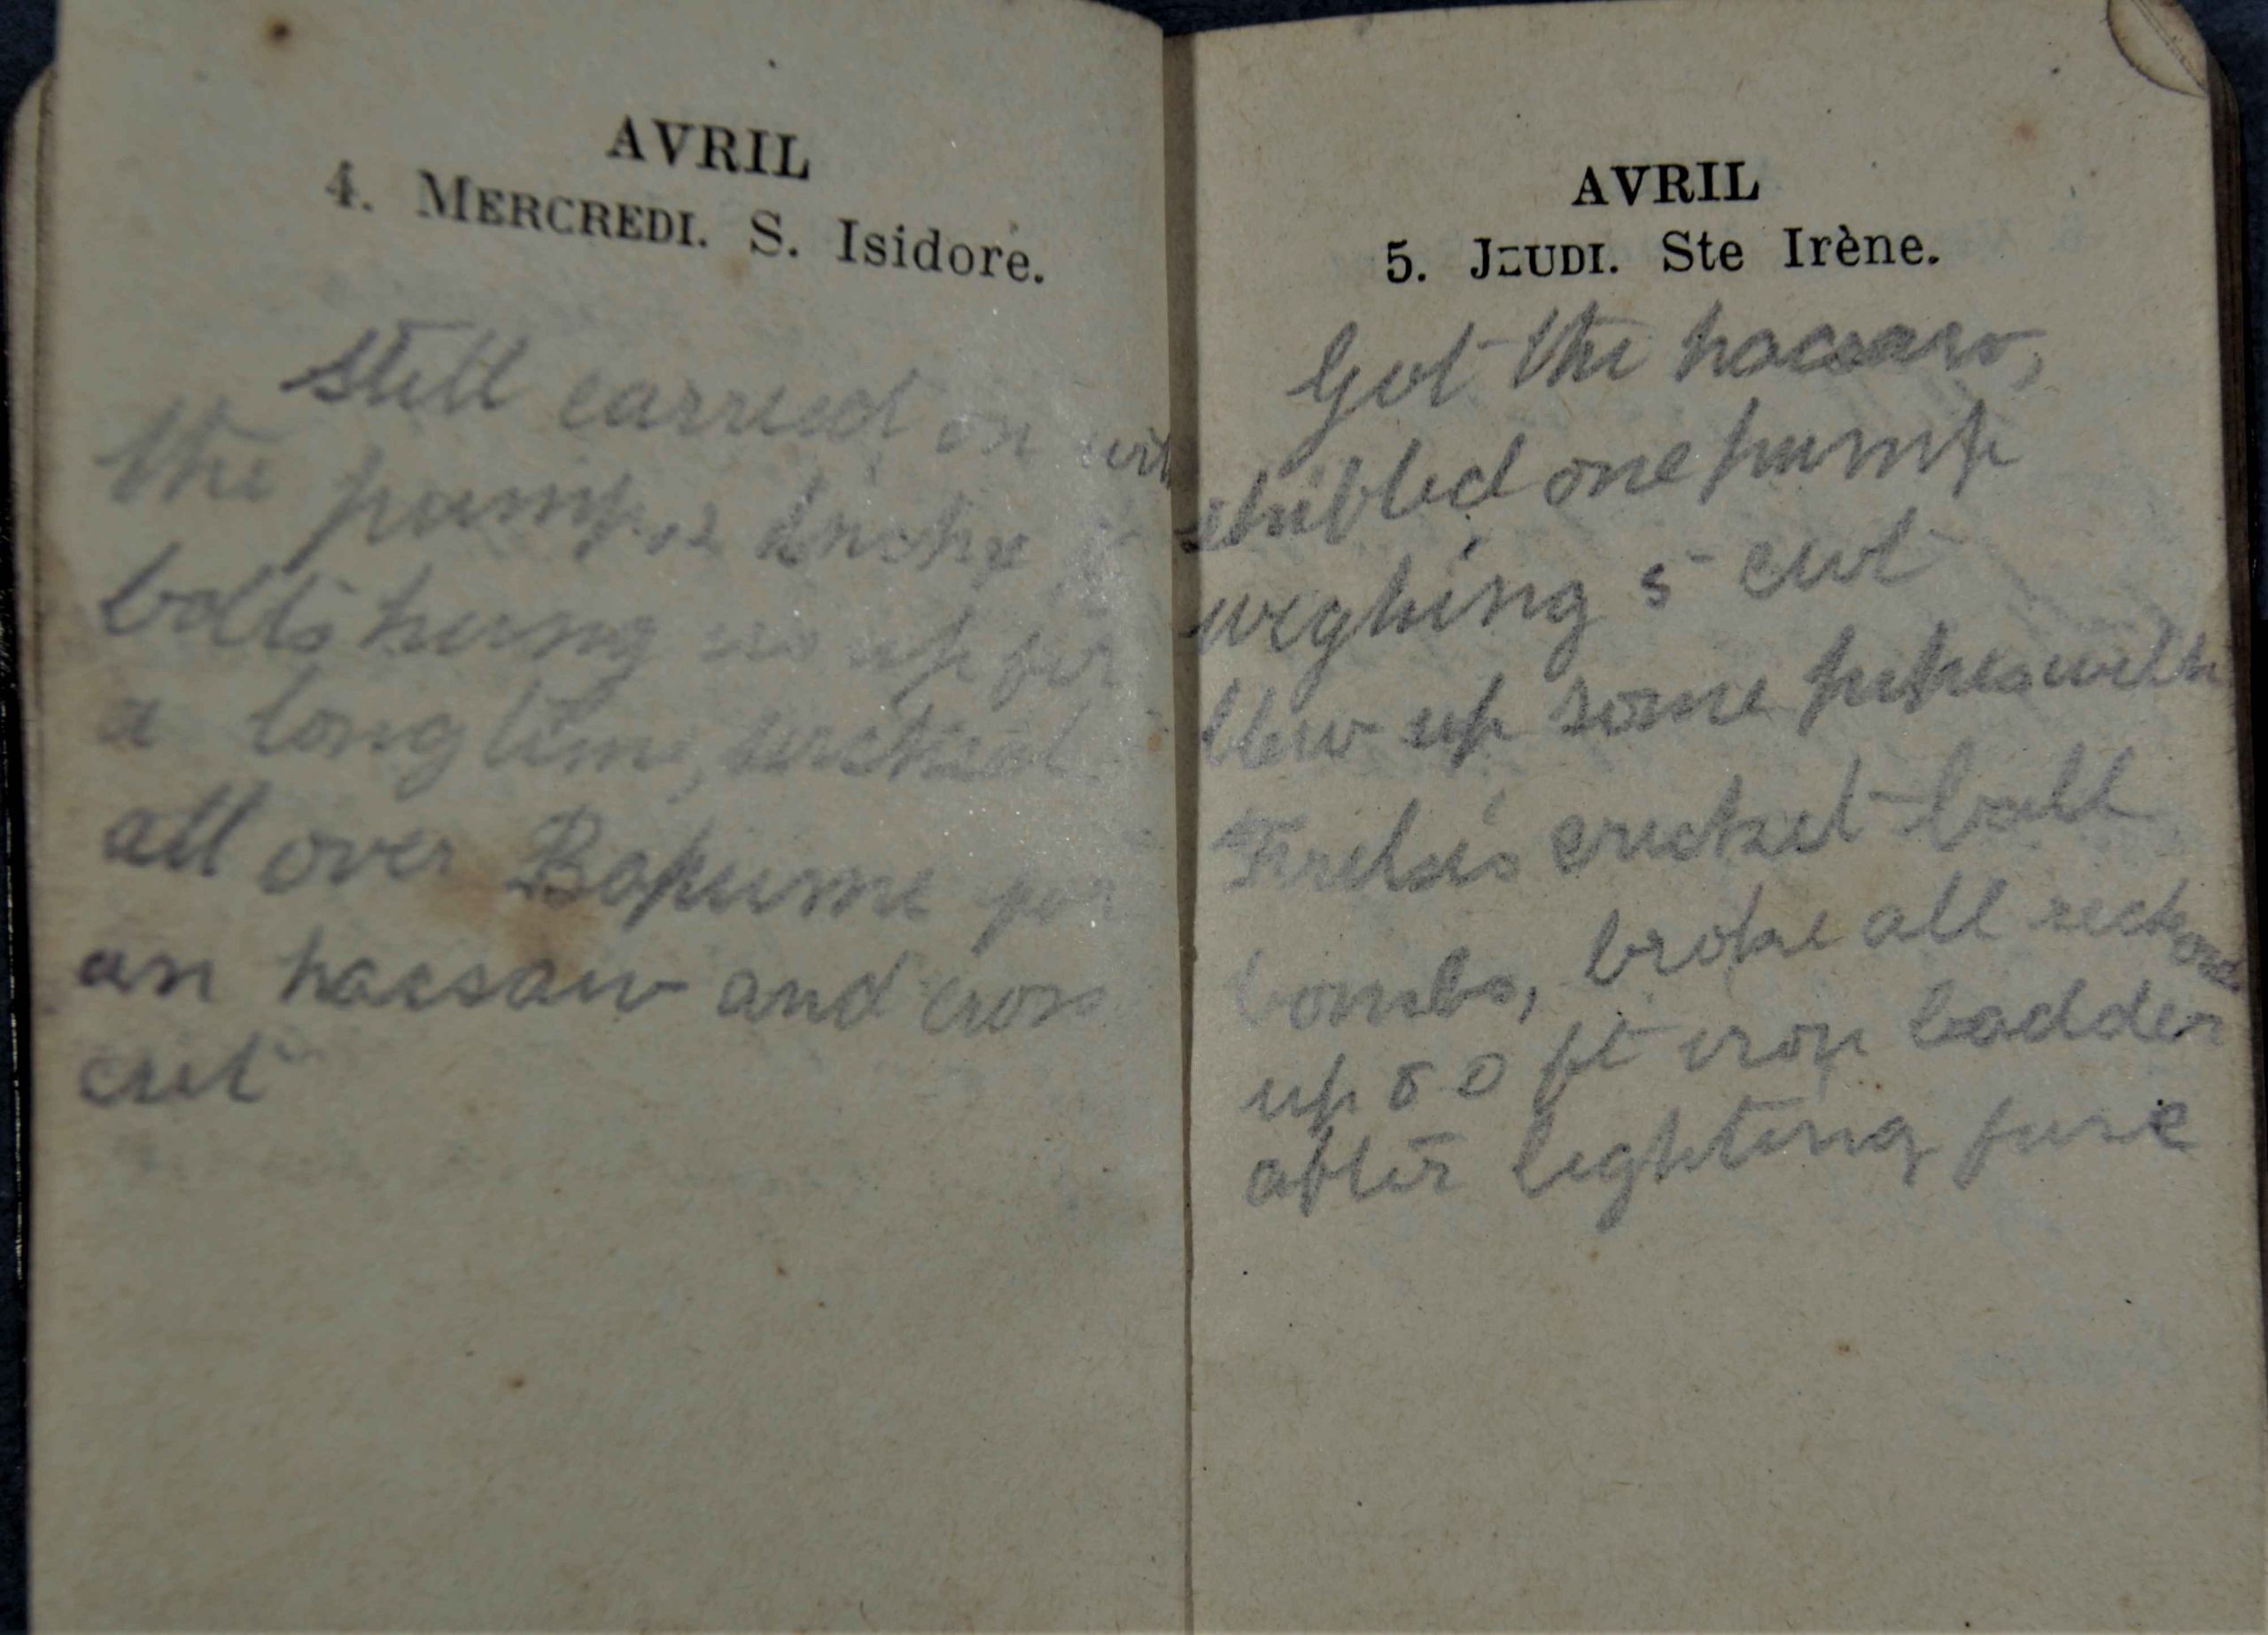 AVRIL
4. MERCREDI. S. Isidore.
Still carried on with
the pumps broke
bolts hung us up for
a long time, serched
all over Bapume for
an hacsaw and cross
cut
AVRIL
5. JEUDI. Ste Irène.
Got the hacsaw,
stribled one pump
weghing 5 cwt
blew up some pipes with
cricket ball
bombs, broke all reckonds
up 80 ft iron ladder
after lighting fuse